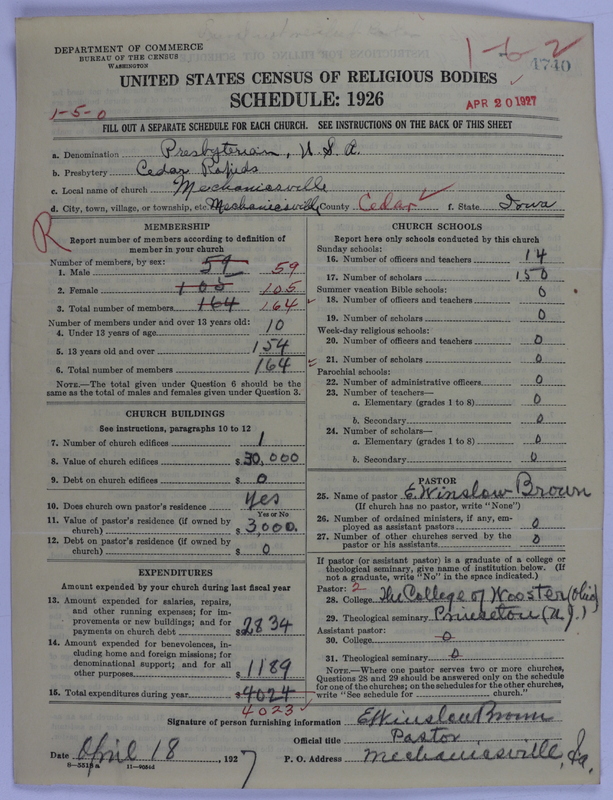 DEPARTMENT OF COMMERCE
BUREAU OF THE CENSUS
WASHINGTON
1-6 2
4740
UNITED STATES CENSUS OF RELIGIOUS BODIES
SCHEDULE: 1926
APR 20 1927
1-5-0
FILL OUT A SEPARATE SCHEDULE FOR EACH CHURCH. SEE INSTRUCTIONS ON THE BACK OF THIS SHEET
a. Denomination Presbyterian, U.S.A.
b. Presbytery Cedar Rapids
c. Local name of church Mechanicsville
d. City, town, village, or township, etc. Mechanicsville County Cedar f. State Iowa
R
MEMBERSHIP
Report number of members according to definition of
member in your church
Number of members, by sex:
1. Male 59 59
2. Female 105 105
3. Total number of members 164 164
Number of members under and over 13 years old:
4. Under 13 years of age 10
5. 13 years old and over 154
6. Total number of members 164 =
NOTE.—The total given under Question 6 should be
same as the total of males and females given under Question 3.
CHURCH BUILDINGS
See instructions, paragraphs 10 to 12
7. Number of church edifices 1
8. Value of church edifices $ 30,000
9. Debt on church edifices $ 0
10. Does church own pastor's residence? Yes
Yes or No
11. Value of pastor's residence (if owned by
church) $ 3,000.
12. Debt on pastor's residence (if owned by
church) $ 0
EXPENDITURES
Amount expended by your church during last fiscal year
13. Amount expended for salaries, repairs,
and other running expenses; for im-
provements or new buildings; and for
payments on church debt $ 2834
14. Amount expended for benevolences, in-
cluding home and foreign missions; for
denominational support; and for all
other purposes $ 1189
15. Total expenditures during year $ 4024
4023
CHURCH SCHOOLS
Report here only schools conducted by this church
Sunday schools:
16. Number of officers and teachers 14
17. Number of scholars 150
Summer vacation Bible schools:
18. Number of officers and teachers 0
19. Number of scholars 0
Week-day religious schools:
20. Number of officers and teachers 0
21. Number of scholars 0
Parochial schools:
22. Number of administrative officers 0
23. Number of teachers—
a. Elementary (grades 1 to 8) 0
b. Secondary 0
24. Number of scholars—
a. Elementary (grades 1 to 8) 0
b. Secondary 0
PASTOR
25. Name of pastor E. Winslow Brown
(If church has no pastor, write "None")
26. Number of ordained ministers, if any, em-
ployed as assistant pastors 0
27. Number of other churches served by the
pastor or his assistants 0
If pastor (or assistant pastor) is a graduate of a college or
theological seminary, give name of institution below. (If
not a graduate, write "No" in the space indicated.)
Pastor: 2
28. College The College of Wooster (Ohio)
29. Theological seminary Princeton (N.J.)
Assistant pastor:
30. College 0
31. Theological seminary 0
NOTE.—Where one pastor serves two or more churches,
Questions 28 and 29 should be answered only on the schedule
for one of the churches; on the schedules for the other churches,
write "See schedule for church."
Signature of person furnishing information E. Winslow Brown
Official title Pastor
Date April 18, 1927 P. O. Address Mechanicsville, Ia.